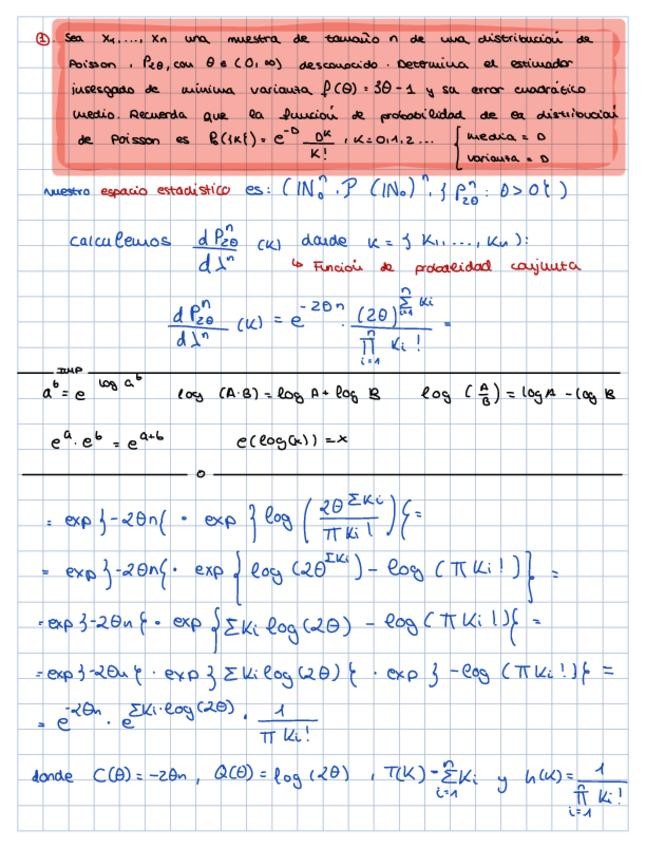 ① Sea X₁,..., Xn una muestra de tamaño n de una distribución de
Poisson, P₂θ, con θ ∈ (0, ∞) desconocido. Determina el estimador
insesgado de mínima varianza f(θ) = 3θ - 1 y su error cuadrático
medio. Recuerda que la función de probabilidad de la distribución
de Poisson es P₀({K}) = e^-D D^K / K! , K = 0,1,2... { media = D
varianza = D
Nuestro espacio estadístico es: (IN₀^n, P (IN₀)^n, { P₂θ^n : θ > 0 })
Calculemos dP₂θ^n / dλ^n (K) donde K = { K₁,..., Kn }:
↳ Función de probabilidad conjunta
dP₂θ^n / dλ^n (K) = e^-2θn · (2θ)^Σ(i=1, n) Ki / ∏(i=1, n) Ki! =
IMP
a^b = e^log a^b log (A·B) = log A + log B log (A/B) = log A - log B
e^a · e^b = e^a+b e(log(x)) = x
= exp {-2θn} · exp { log ( 2θ^ΣKi / π Ki! ) } =
= exp {-2θn} · exp { log (2θ^ΣKi) - log (π Ki!) } =
= exp {-2θn} · exp { ΣKi log (2θ) - log (π Ki!) } =
= exp {-2θn} · exp { ΣKi log (2θ) } · exp { -log (π Ki!) } =
= e^-2θn · e^ΣKi·log(2θ) · 1 / π Ki!
donde C(θ) = -2θn , Q(θ) = log (2θ) , T(K) = Σ(i=1, n) Ki y h(K) = 1 / ∏(i=1, n) Ki!